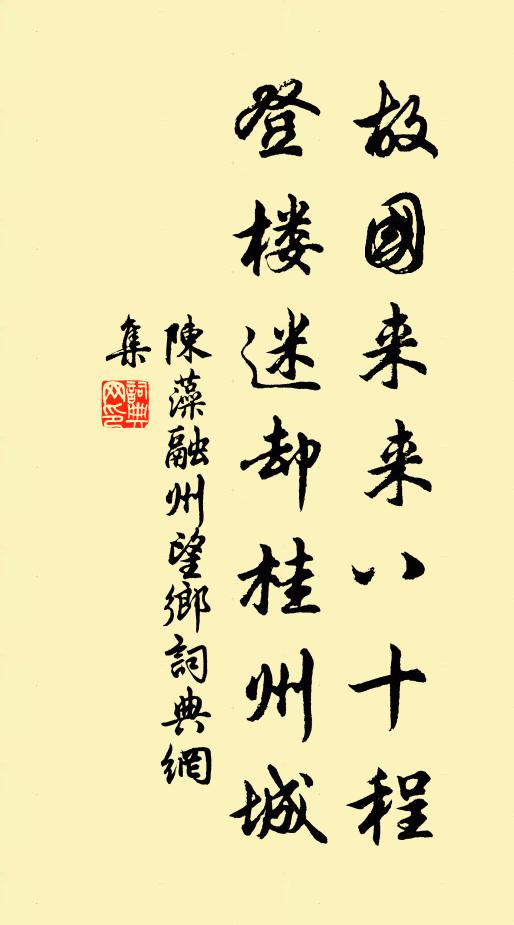 故國来来八十程
登楼迷却桂州城
陳藻融州望鄉詞典網
集
詞典網印